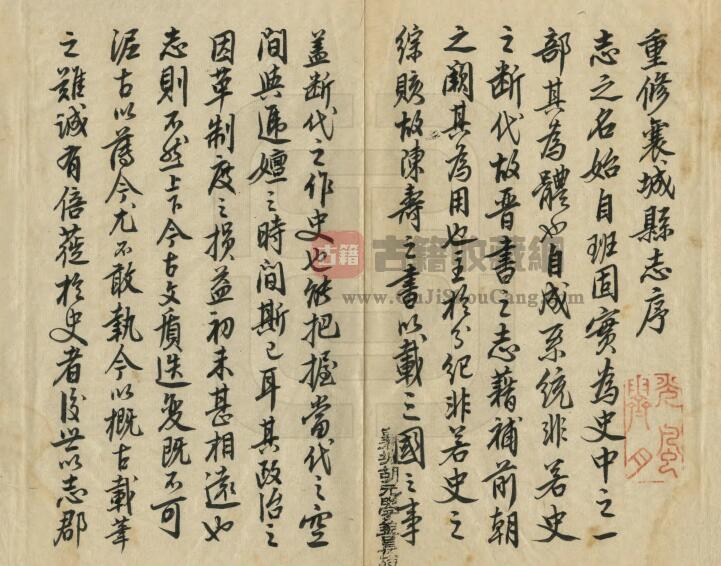 重修襄城縣志序
志之名始自班固實為史中之一
部其為體也自成系統非若史
之断代故晋書之志藉補前朝
之闕其為用也主於分紀非若史之
綜賅故陳壽之書以載三國之事
盖断代之作史也能把握當代之空
間與遞嬗之時間斯已耳其政治之
因革制度之損益初未甚相遠也
志則不然上下今古文質迭變既不可
泥古以薄今尤不敢執今以概古載筆
之難誠有倍蓰於史者後世以志郡
古籍
古籍收藏網
www.GuJiShouCang.com